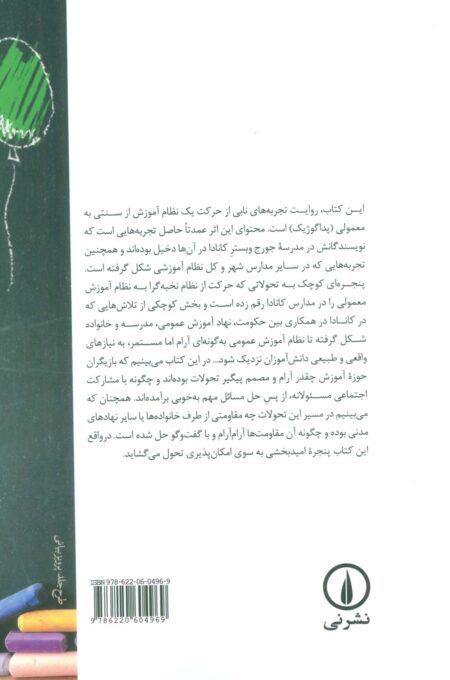 این کتاب، روایت تجربه‌های نابی از حرکت یک نظام آموزش از سنتی به
معمولی (پداگوژیک) است. محتوای این اثر عمدتاً حاصل تجربه‌هایی است که
نویسندگانش در مدرسهٔ جورج وبسترِ کانادا در آن‌ها دخیل بوده‌اند و همچنین
تجربه‌هایی که در سایر مدارس شهر و کل نظام آموزشی شکل گرفته است.
پنجره‌ای کوچک به تحولاتی که حرکت از نظام نخبه‌گرا به نظام آموزش
معمولی را در مدارس کانادا رقم زده است و بخش کوچکی از تلاش‌هایی که
در کانادا در همکاری بین حکومت، نهاد آموزش عمومی، مدرسه و خانواده
شکل گرفته تا نظام آموزش عمومی به‌گونه‌ای آرام اما مستمر، به نیازهای
واقعی و طبیعی دانش‌آموزان نزدیک شود... در این کتاب می‌بینیم که بازیگران
حوزهٔ آموزش چقدر آرام و مصمم پیگیر تحولات بوده‌اند و چگونه با مشارکت
اجتماعی مسئولانه، از پسِ حل مسائل مهم به‌خوبی برآمده‌اند. همچنان که
می‌بینیم در مسیر این تحولات چه مقاومتی از طرف خانواده‌ها یا سایر نهادهای
مدنی بوده و چگونه آن مقاومت‌ها آرام‌آرام و با گفت‌وگو حل شده است. درواقع
این کتاب پنجرهٔ امیدبخشی به سوی امکان‌پذیری تحول می‌گشاید.
طرح جلد: پرویز بیانی
ISBN 978-622-06-0496-9
9 786220 604969
نشر نی